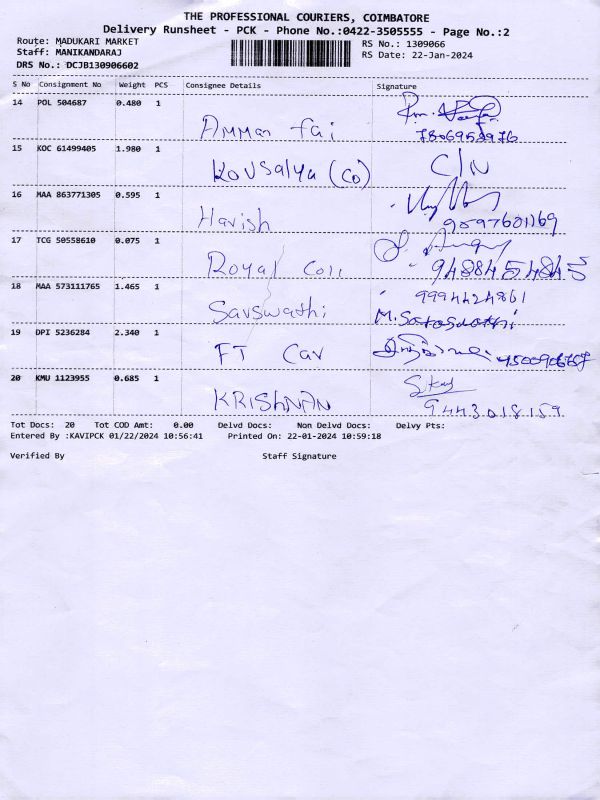 THE PROFESSIONAL COURIERS, COIMBATORE
Delivery Runsheet - PCK - Phone No.:0422-3505555 - Page No.:2
Route: MADUKARI MARKET
RS No.: 1309066
Staff: MANIKANDARAJ
RS Date: 22-Jan-2024
DRS No.: DCJB130906602
S No Consignment No Weight PCS Consignee Details Signature
14 POL 504687 0.480 1
Amman
15 KOC 61499405 1.980 1
Kousalya (Co) C/N
16 MAA 863771305 0.595 1
Harish 9597601169
17 TCG 50558610 0.075 1
Royal 9488454845
18 MAA 573111765 1.465 1 9994424861
19 DPI 5236284 2.340 1
FT Car
20 KMU 1123955 0.685 1
KRISHNAN 9443018159
Tot Docs: 20 Tot COD Amt: 0.00 Delvd Docs: Non Delvd Docs: Delvy Pts:
Entered By :KAVIPCK 01/22/2024 10:56:41 Printed On: 22-01-2024 10:59:18
Verified By Staff Signature